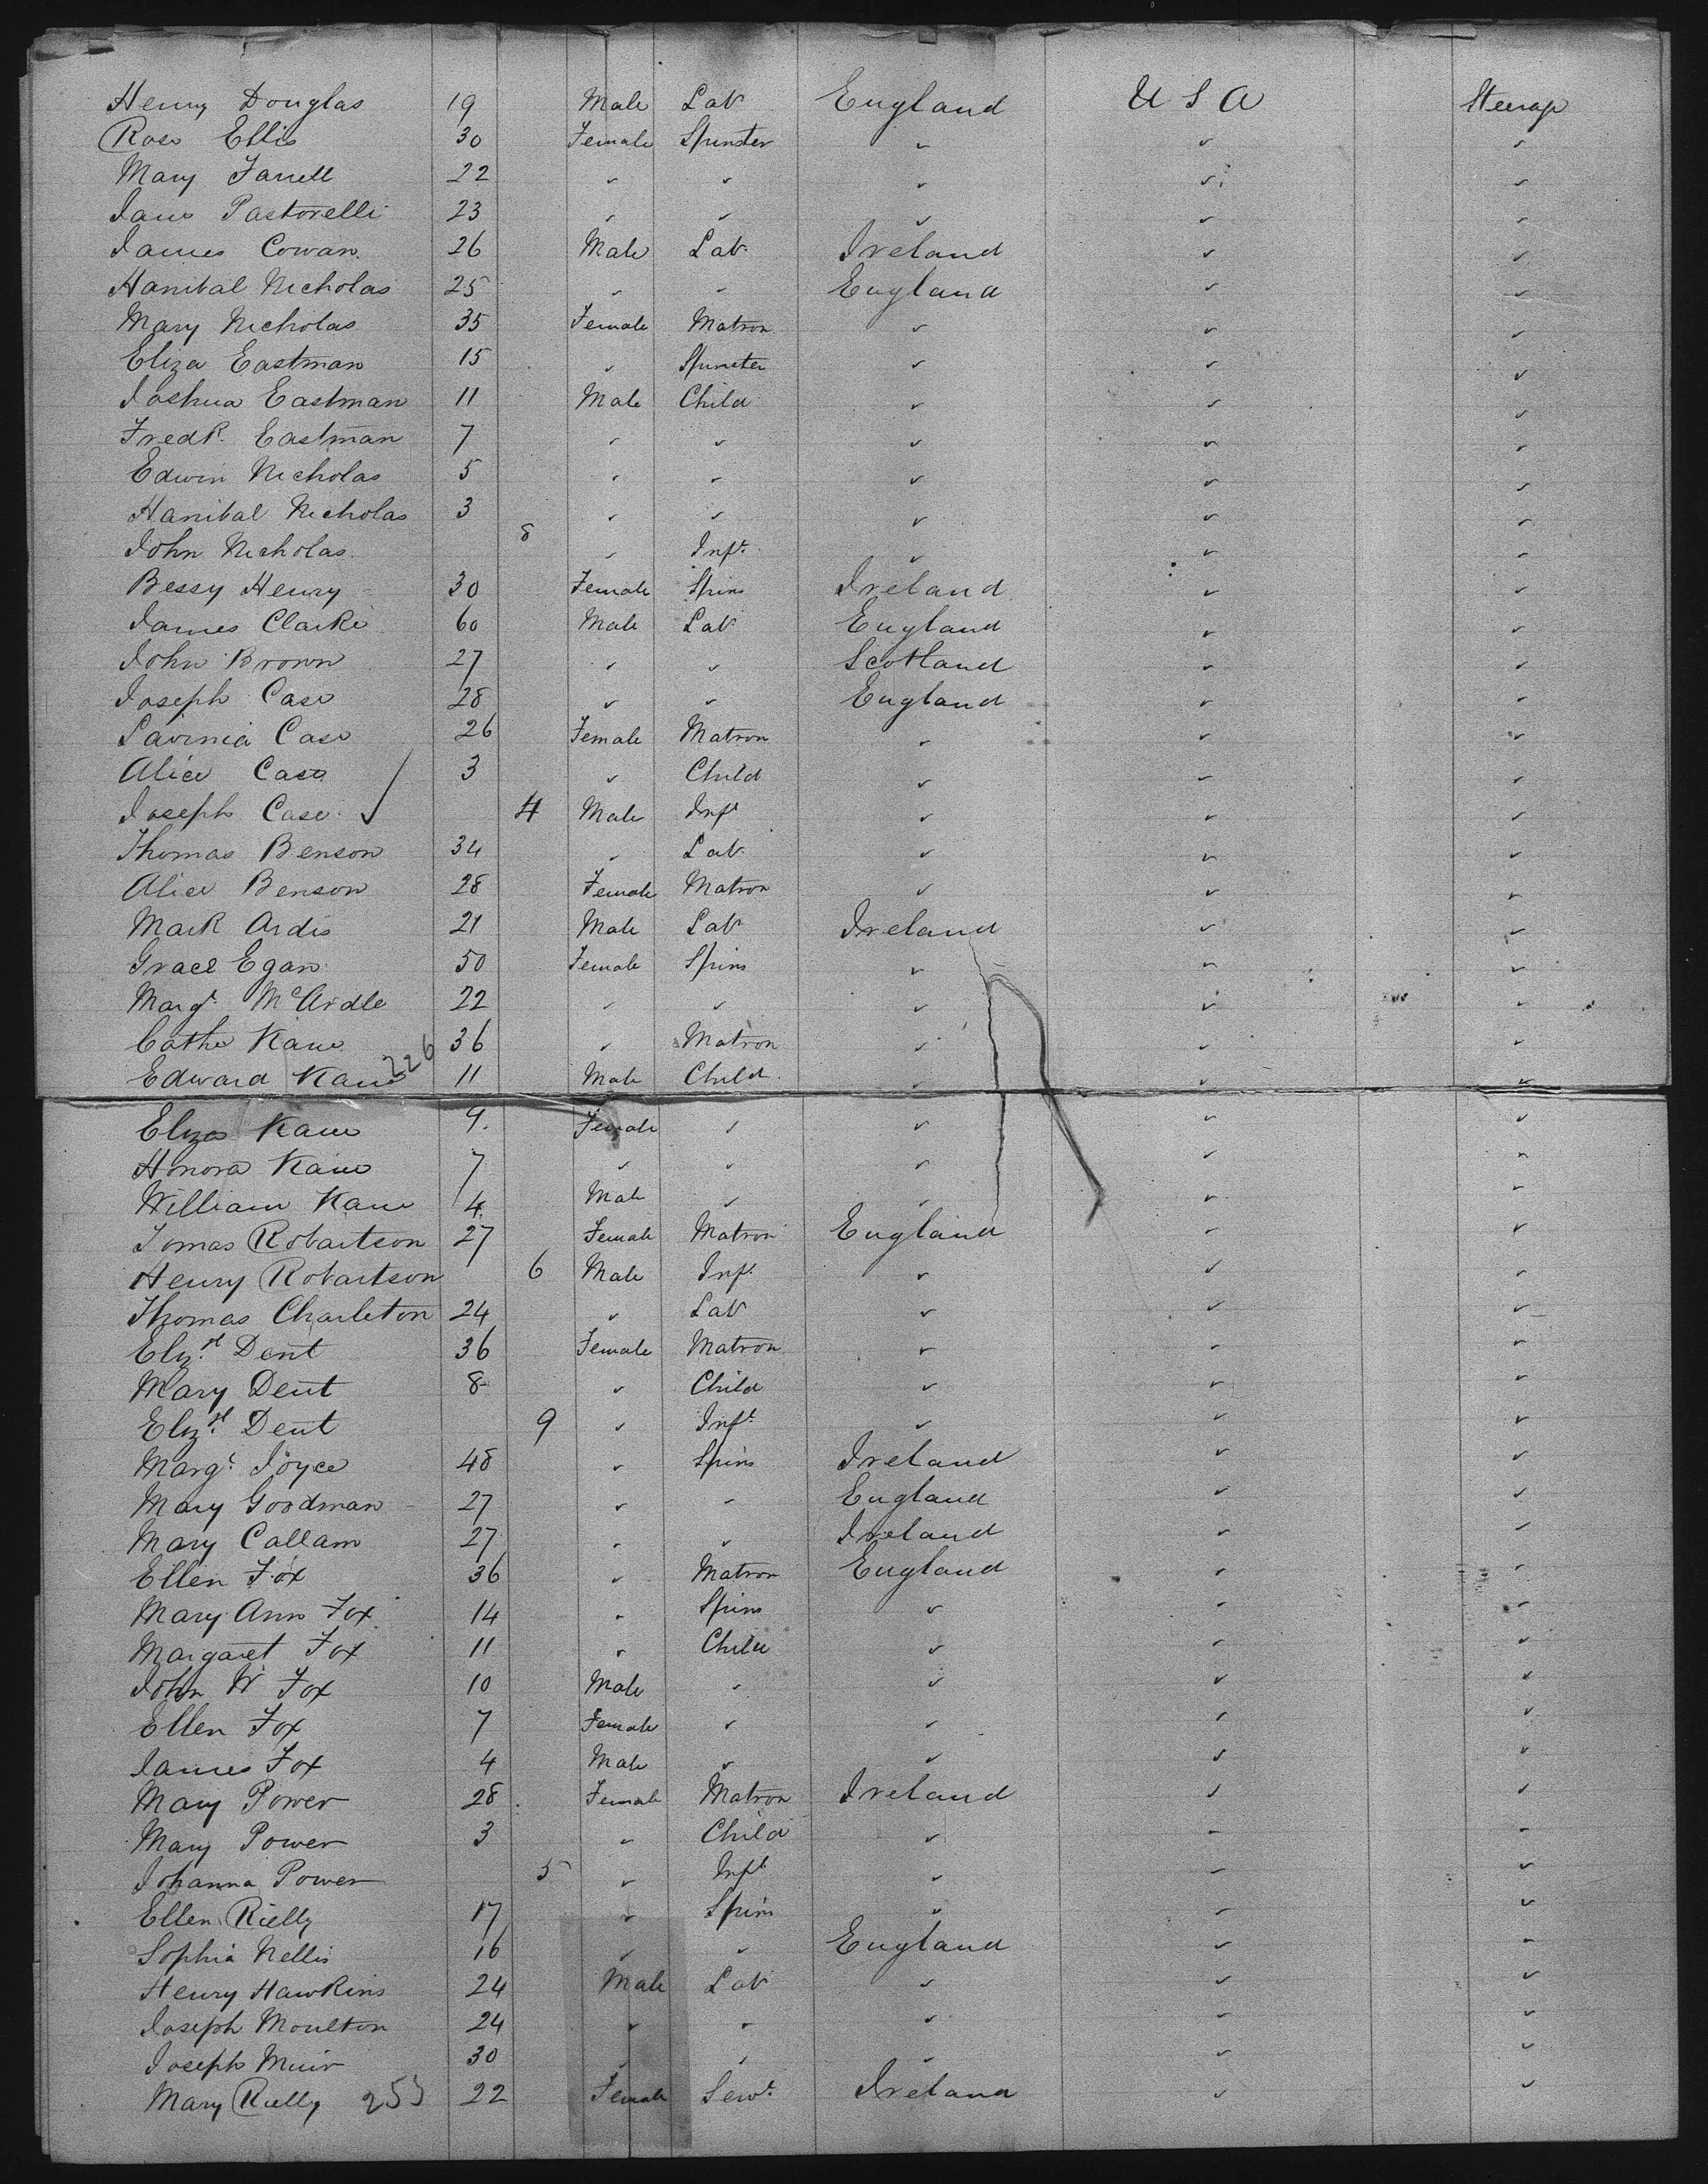 Henry Douglas 19 Male Lab England U S A Steerage
Rose Ellis 30 Female Spinster ✓ ✓ ✓
Mary Farrell 22 ✓ ✓ ✓ ✓ ✓
Jane Pastorelli 23 ✓ ✓ ✓ ✓ ✓
James Cowan 26 Male Lab Ireland ✓ ✓
Hanibal Nicholas 25 ✓ ✓ England ✓ ✓
Mary Nicholas 35 Female Matron ✓ ✓ ✓
Eliza Eastman 15 ✓ Spinster ✓ ✓ ✓
Joshua Eastman 11 Male Child ✓ ✓ ✓
Fredk. Eastman 7 ✓ ✓ ✓ ✓ ✓
Edwin Nicholas 5 ✓ ✓ ✓ ✓ ✓
Hanibal Nicholas 3 ✓ ✓ ✓ ✓ ✓
John Nicholas 8 ✓ Inft. ✓ ✓ ✓
Bessy Henry 30 Female Spins Ireland ✓ ✓
James Clarke 60 Male Lab England ✓ ✓
John Brown 27 ✓ ✓ Scotland ✓ ✓
Joseph Case 28 ✓ ✓ England ✓ ✓
Lavinia Case 26 Female Matron ✓ ✓ ✓
Alice Case 3 ✓ Child ✓ ✓ ✓
Joseph Case 4 Male Inft ✓ ✓ ✓
Thomas Benson 34 ✓ Lab ✓ ✓ ✓
Alice Benson 28 Female Matron ✓ ✓ ✓
Mark Ardis 21 Male Lab Ireland ✓ ✓
Grace Egan 50 Female Spins ✓ ✓ ✓
Margt. McArdle 22 ✓ ✓ ✓ ✓ ✓
Cathe Kane 36 ✓ Matron ✓ ✓ ✓
Edward Kane 226 11 Male Child ✓ ✓ ✓
Eliza Kane 9 Female ✓ ✓ ✓ ✓
Honora Kane 7 ✓ ✓ ✓ ✓ ✓
William Kane 4 Male ✓ ✓ ✓ ✓
Tomas Robartson 27 Female Matron England ✓ ✓
Henry Robartson 6 Male Inft ✓ ✓ ✓
Thomas Charleton 24 ✓ Lab ✓ ✓ ✓
Elizth Dent 36 Female Matron ✓ ✓ ✓
Mary Dent 8 ✓ Child ✓ ✓ ✓
Elizth Dent 9 ✓ Inft. ✓ ✓ ✓
Margt. Joyce 48 ✓ Spins Ireland ✓ ✓
Mary Goodman 27 ✓ ✓ England ✓ ✓
Mary Callam 27 ✓ ✓ Ireland ✓ ✓
Ellen Fox 36 ✓ Matron England ✓ ✓
Mary Ann Fox 14 ✓ Spins ✓ ✓ ✓
Margaret Fox 11 ✓ Child ✓ ✓ ✓
John W Fox 10 Male ✓ ✓ ✓ ✓
Ellen Fox 7 Female ✓ ✓ ✓ ✓
James Fox 4 Male ✓ ✓ ✓ ✓
Mary Power 28 Female Matron Ireland ✓ ✓
Mary Power 3 ✓ Child ✓ ✓ ✓
Johanna Power 5 ✓ Inft ✓ ✓ ✓
Ellen Rielly 17 ✓ Spins ✓ ✓ ✓
Sophia Nellis 16 ✓ ✓ England ✓ ✓
Henry Hawkins 24 Male Lab ✓ ✓ ✓
Joseph Moulton 24 ✓ ✓ ✓ ✓ ✓
Joseph Muir 30 ✓ ✓ ✓ ✓ ✓
Mary Rielly 253 22 Female Servt. Ireland ✓ ✓